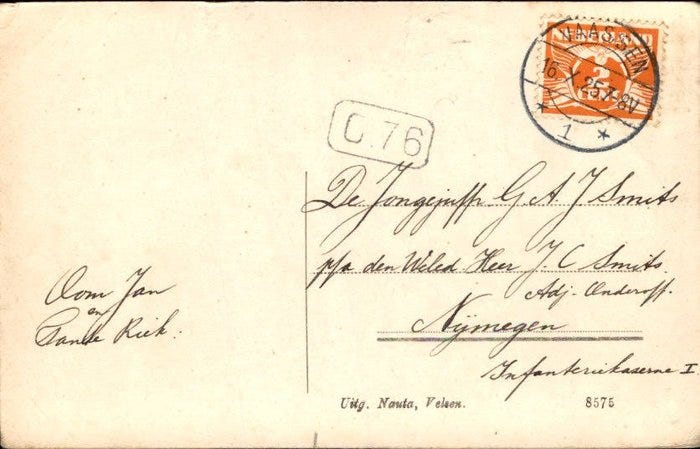 NEDERLAND
2
VAASSEN
16. X .25.7-8V
* 1 *
C.76
De Jongejuffr G. A. J Smits
p/a den Weled Heer J. C Smits.
Adj. Onderoff.
Nijmegen
Infanteriekaserne I
Oom Jan
en
Tante Riek.
Uitg. Nauta, Velsen.
8575